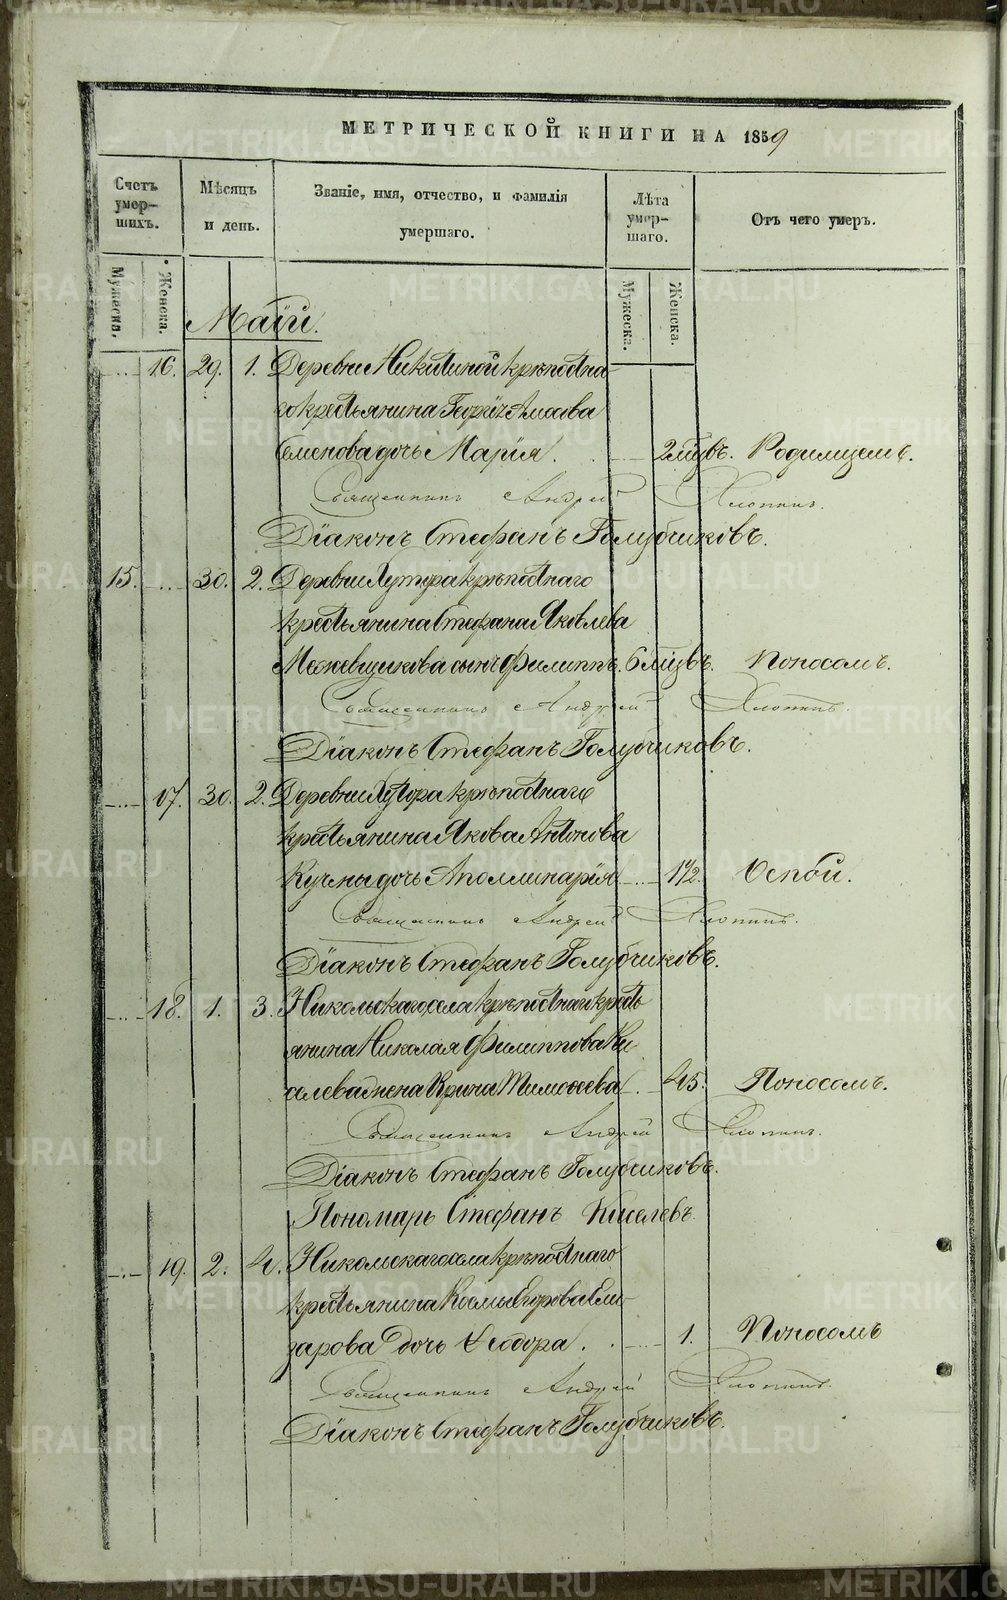 МЕТРИЧЕСКОЙ КНИГИ НА 1859
Счетъ умер-шихъ.
Мѣсяцъ и день.
Званіе, имя, отчество, и фамилія умершаго.
Лѣта умер-шаго.
Отъ чего умеръ.
Мужеска.
Женска.
Мужеска.
Женска.
Маій.
16. 29. 1. Деревни Никитиной крѣпостна-
го крестьянина Георгія
Семенова дочь Марія. 2 мцвъ. Родимцемъ.
Священникъ Андрей Хлопинъ.
Діаконъ Стефанъ Голубчиковъ.
15. 30. 2. Деревни Хутора крѣпостнаго
крестьянина Стефана Яковлева
Межевщикова сынъ Филиппъ. 6 мцвъ. Поносомъ.
Священникъ Андрей Хлопинъ.
Діаконъ Стефанъ Голубчиковъ.
17. 30. 2. Деревни Хутора крѣпостнаго
крестьянина Якова Антонова
дочь Аполлинарія 1 1/2. Оспой.
Священникъ Андрей Хлопинъ.
Діаконъ Стефанъ Голубчиковъ.
18. 1. 3. Никольскаго села крѣпостнаго кресть
янина Николая Филиппова Ки
селева жена Ирина Тимофеева 45. Поносомъ.
Священникъ Андрей Хлопинъ.
Діаконъ Стефанъ Голубчиковъ.
Пономарь Стефанъ Киселевъ.
19. 2. 4. Никольскаго села крѣпостнаго
крестьянина Космы Егорова Ели-
зарова дочь Ѳеодора. 1. Поносомъ
Священникъ Андрей Хлопинъ.
Діаконъ Стефанъ Голубчиковъ.
METRIKI.GASO-URAL.RU